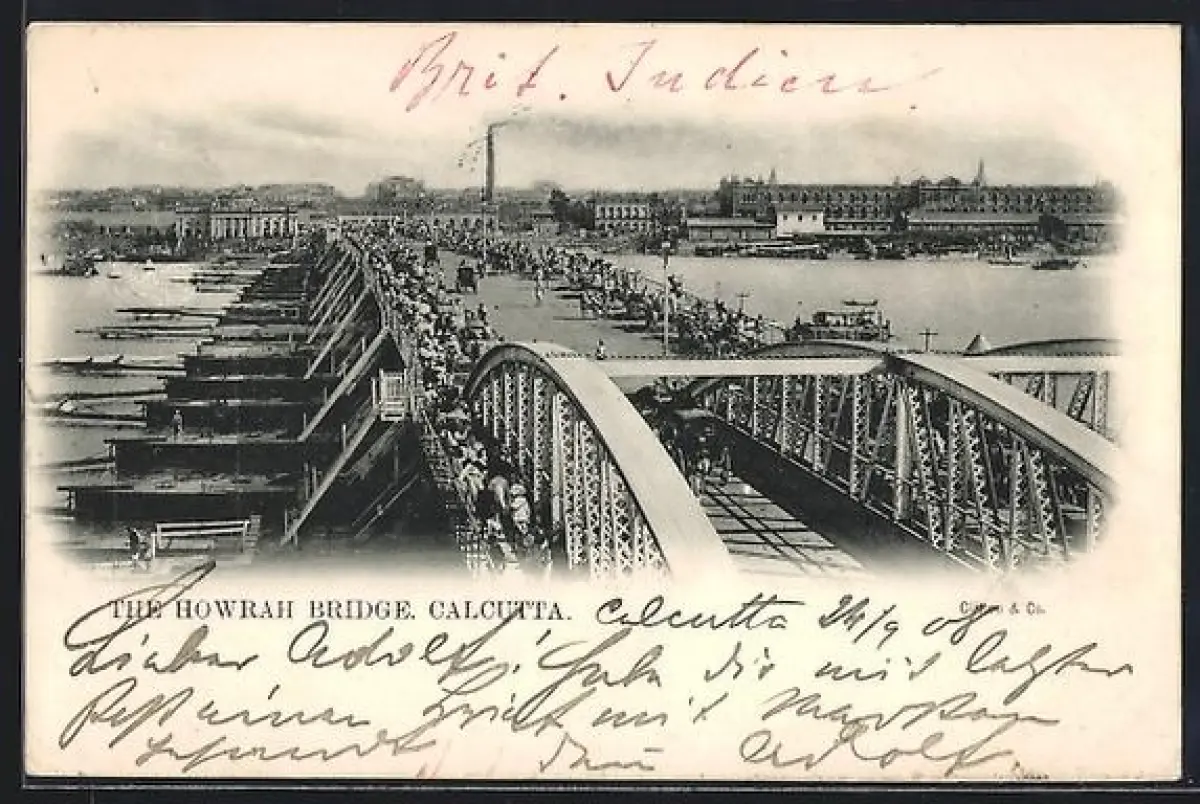 Brit. Indien.
THE HOWRAH BRIDGE. CALCUTTA.
& Co.
Calcutta 24/9 08
Lieber Adolf! Habe dir mit letzter
Post einen Brief mit Marken
Dein Adolf.